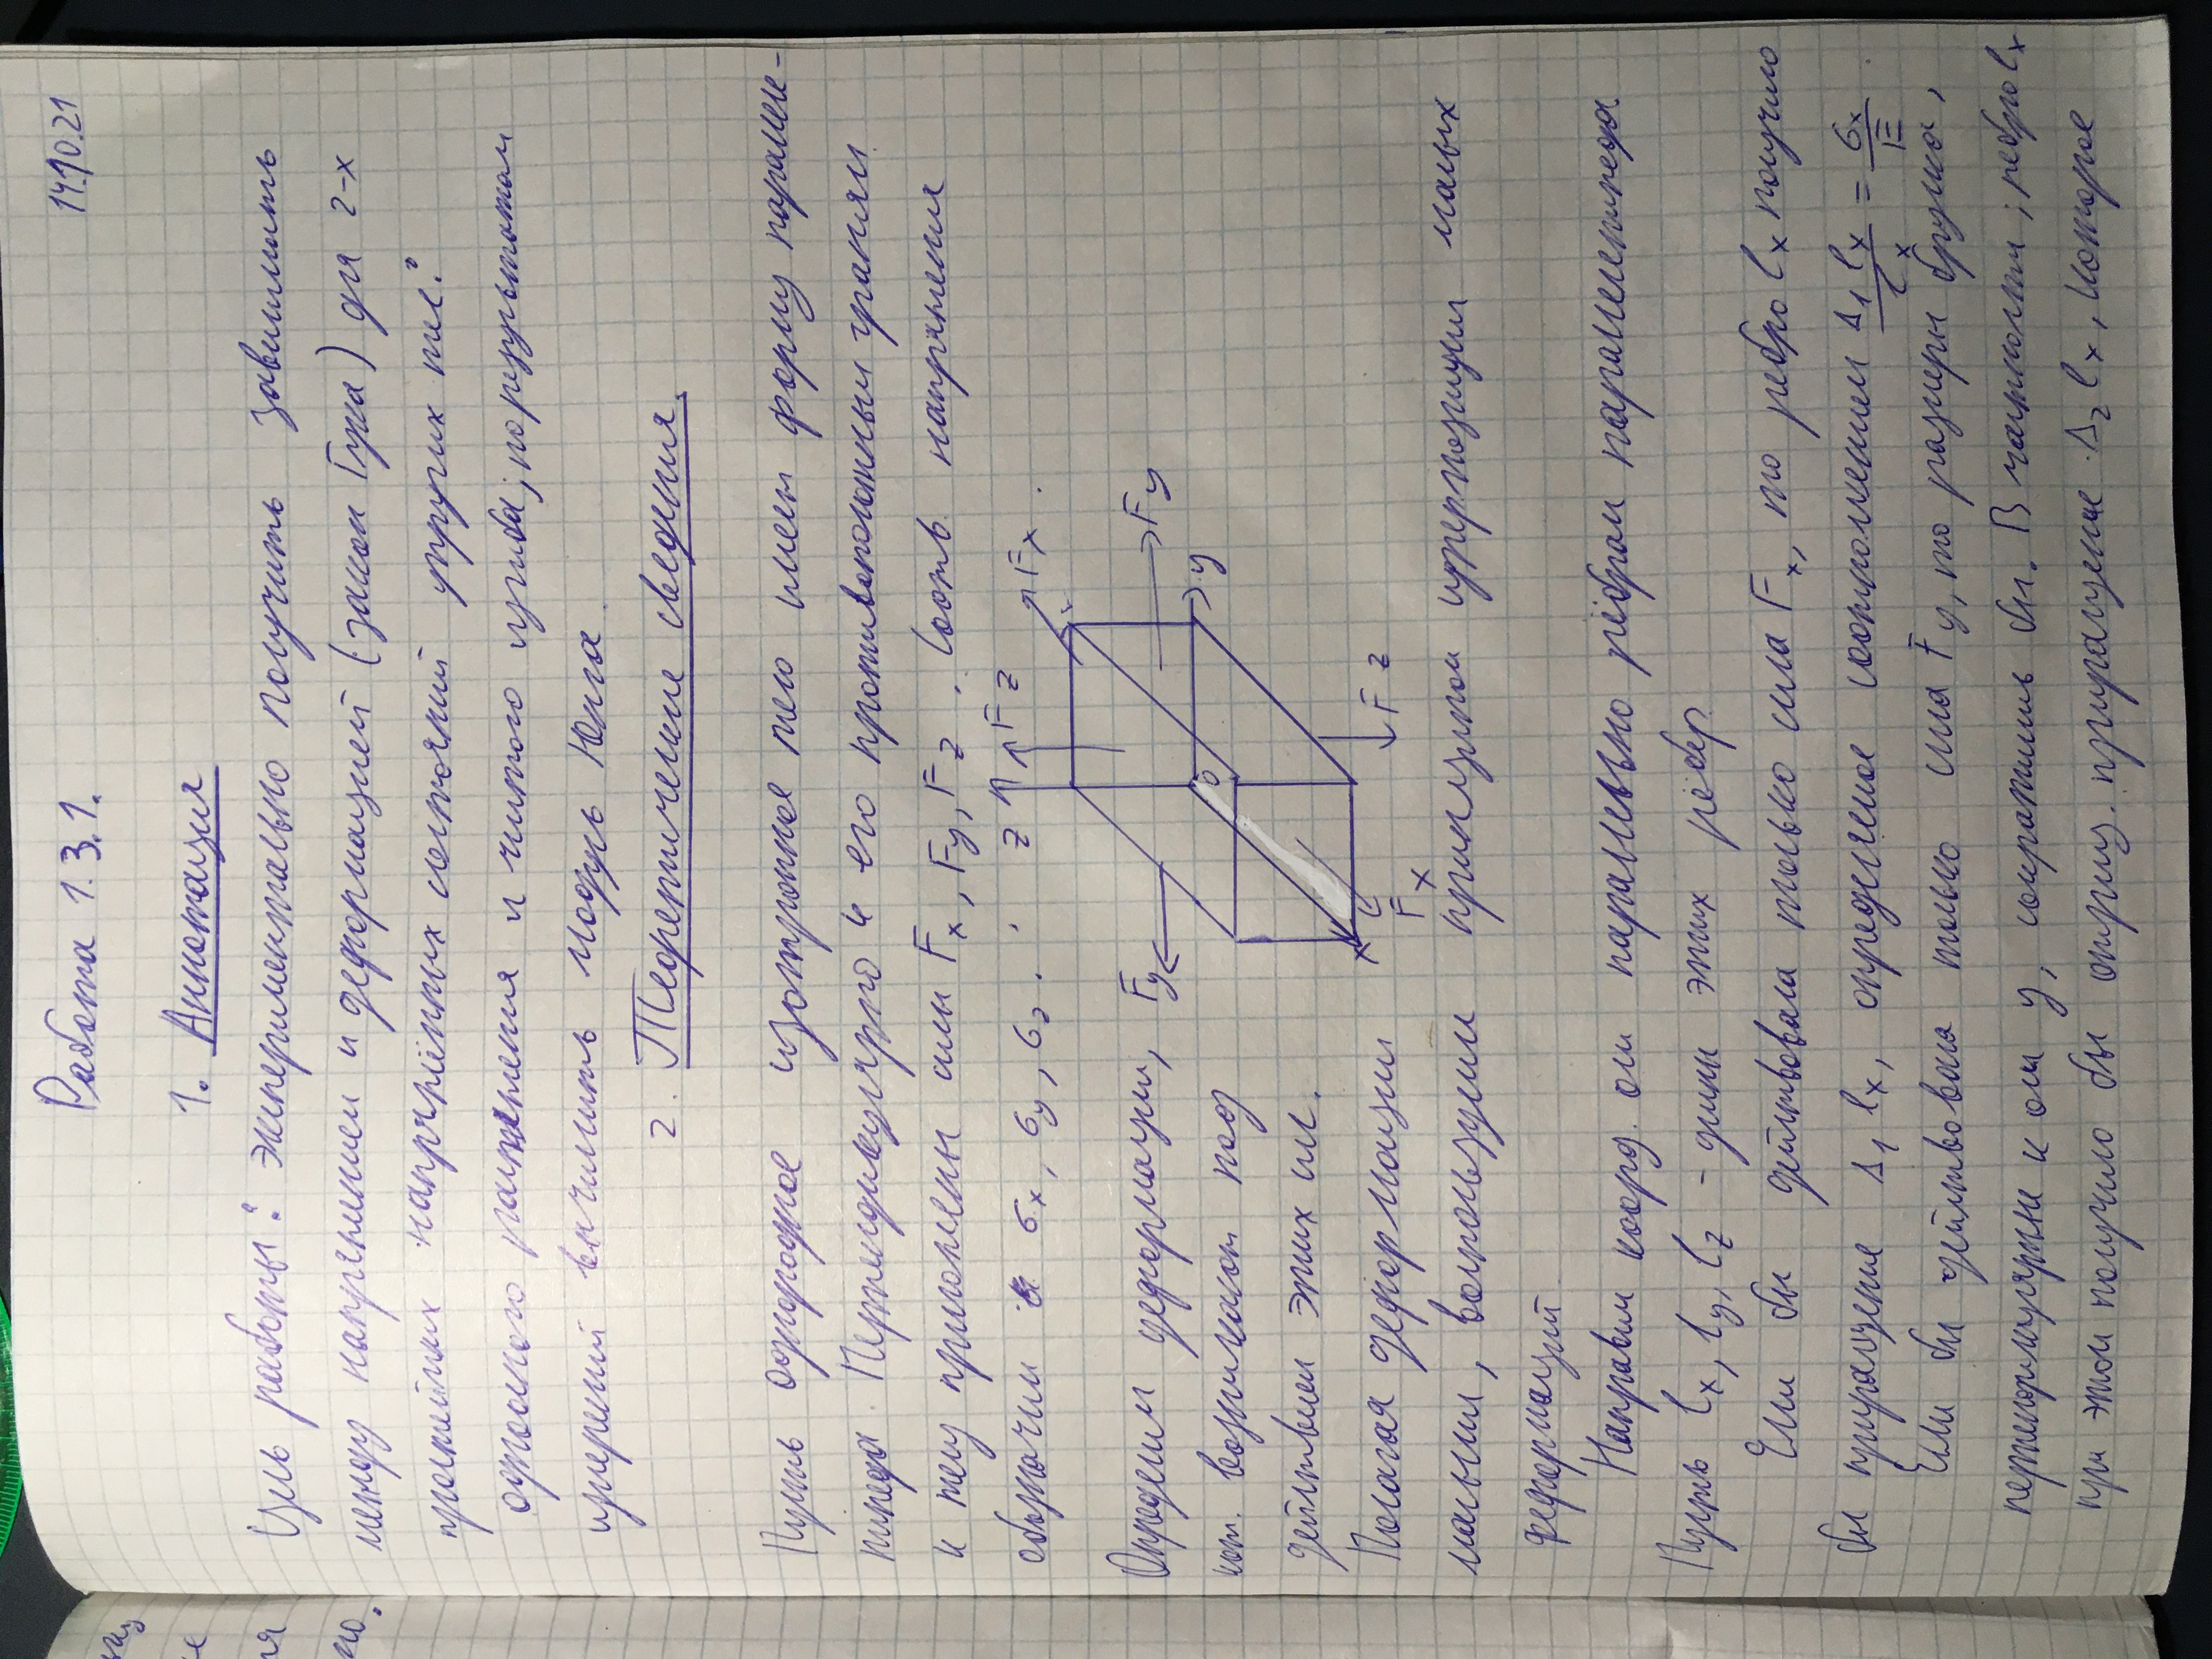 Работа 1.3.1.
14.10.21
1. Аннотация
Цель работы: экспериментально получить зависимость
между напряжением и деформацией (закон Гука) для 2-х
простейших напряжённых состояний упругих тел:
одноосного растяжения и чистого изгиба; по результатам
измерений вычислить модуль Юнга.
2. Теоретические сведения.
Пусть однородное изотропное тело имеет форму параллеле-
пипеда. Перпендикулярно к его противоположным граням
к телу приложены силы Fx, Fy, Fz. Соотв. напряжения
обозначим σx, σy, σz.
z Fz Fx
Определим деформации,
Fy Fy
кот. возникают под
0 y
действием этих сил.
x
Полагая деформации
Fx Fz
малыми, воспользуемся принципом суперпозиции малых
деформаций.
Направим коорд. оси параллельно рёбрам параллелепипеда
Пусть lx, ly, lz - длины этих рёбер.
Если бы действовала только сила Fx, то ребро lx получило
бы приращение Δ1 lx, определяемое соотношением Δ1 lx / lx = σx / E.
Если бы действовала только сила Fy, то размеры бруска,
перпендикулярные к оси y, сократились бы. В частности, ребро lx
при этом получило бы отриц. приращение Δ2 lx, которое